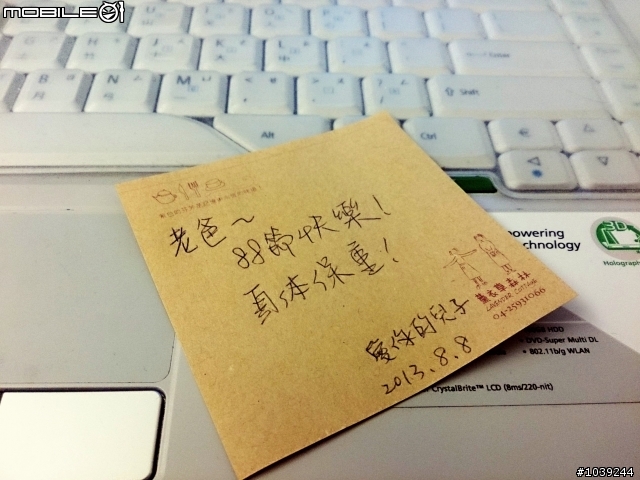 MOBILE01
老爸~
88節快樂!
身体保重!
愛你的兒子
2013.8.8
薰衣草森林
LAVENDER COTTAGE
04-25931066
Alt
Ctrl
Shift
Enter
B
N
M
G
H
J
K
L
Empowering
Technology
Holograph
HDD
• DVD-Super Multi DL
• 802.11b/g WLAN
CrystalBrite™ LCD (8ms/220-nit)
#1039244